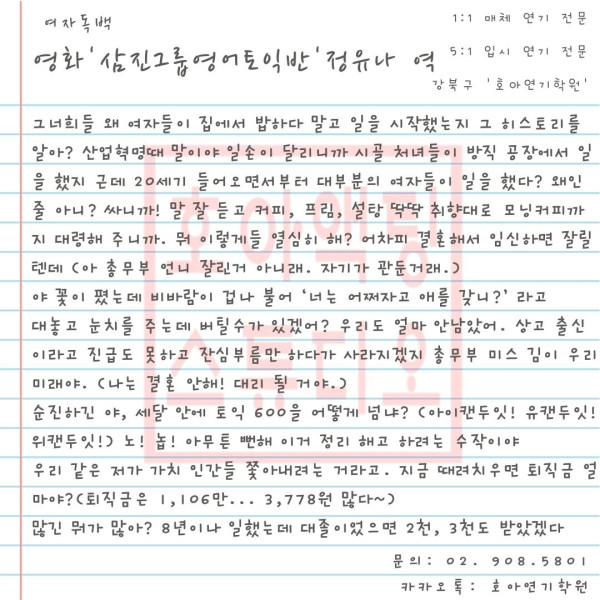 여자독백
1:1 매체 연기 전문
영화'삼진그룹영어토익반'정유나 역
5:1 입시 연기 전문
강북구 '호아연기학원'
그너희들 왜 여자들이 집에서 밥하다 말고 일을 시작했는지 그 히스토리를
알아? 산업혁명때 말이야 일손이 달리니까 시골 처녀들이 방직 공장에서 일
을 했지 근데 20세기 들어오면서부터 대부분의 여자들이 일을 했다? 왜인
줄 아니? 싸니까! 말 잘 듣고 커피, 프림, 설탕 딱딱 취향대로 모닝커피까
지 대령해 주니까. 뭐 이렇게들 열심히 해? 어차피 결혼해서 임신하면 잘릴
텐데 (아 총무부 언니 잘린거 아니래. 자기가 관둔거래.)
야 꽃이 폈는데 비바람이 겁나 불어 '너는 어쩌자고 애를 갖니?' 라고
대놓고 눈치를 주는데 버틸수가 있겠어? 우리도 얼마 안남았어. 상고 출신
이라고 진급도 못하고 잔심부름만 하다가 사라지겠지 총무부 미스 김이 우리
미래야. (나는 결혼 안해! 대리 될 거야.)
순진하긴 야, 세달 안에 토익 600을 어떻게 넘냐? (아이캔두잇! 유캔두잇!
위캔두잇!) 노! 놉! 아무튼 뻔해 이거 정리 해고 하려는 수작이야
우리 같은 저가 가치 인간들 쫓아내려는 거라고. 지금 때려치우면 퇴직금 얼
마야?(퇴직금은 1,106만... 3,778원 많다~)
많긴 뭐가 많아? 8년이나 일했는데 대졸이었으면 2천, 3천도 받았겠다
문의: 02. 908.5801
카카오톡: 호아연기학원
호아액팅
스튜디오